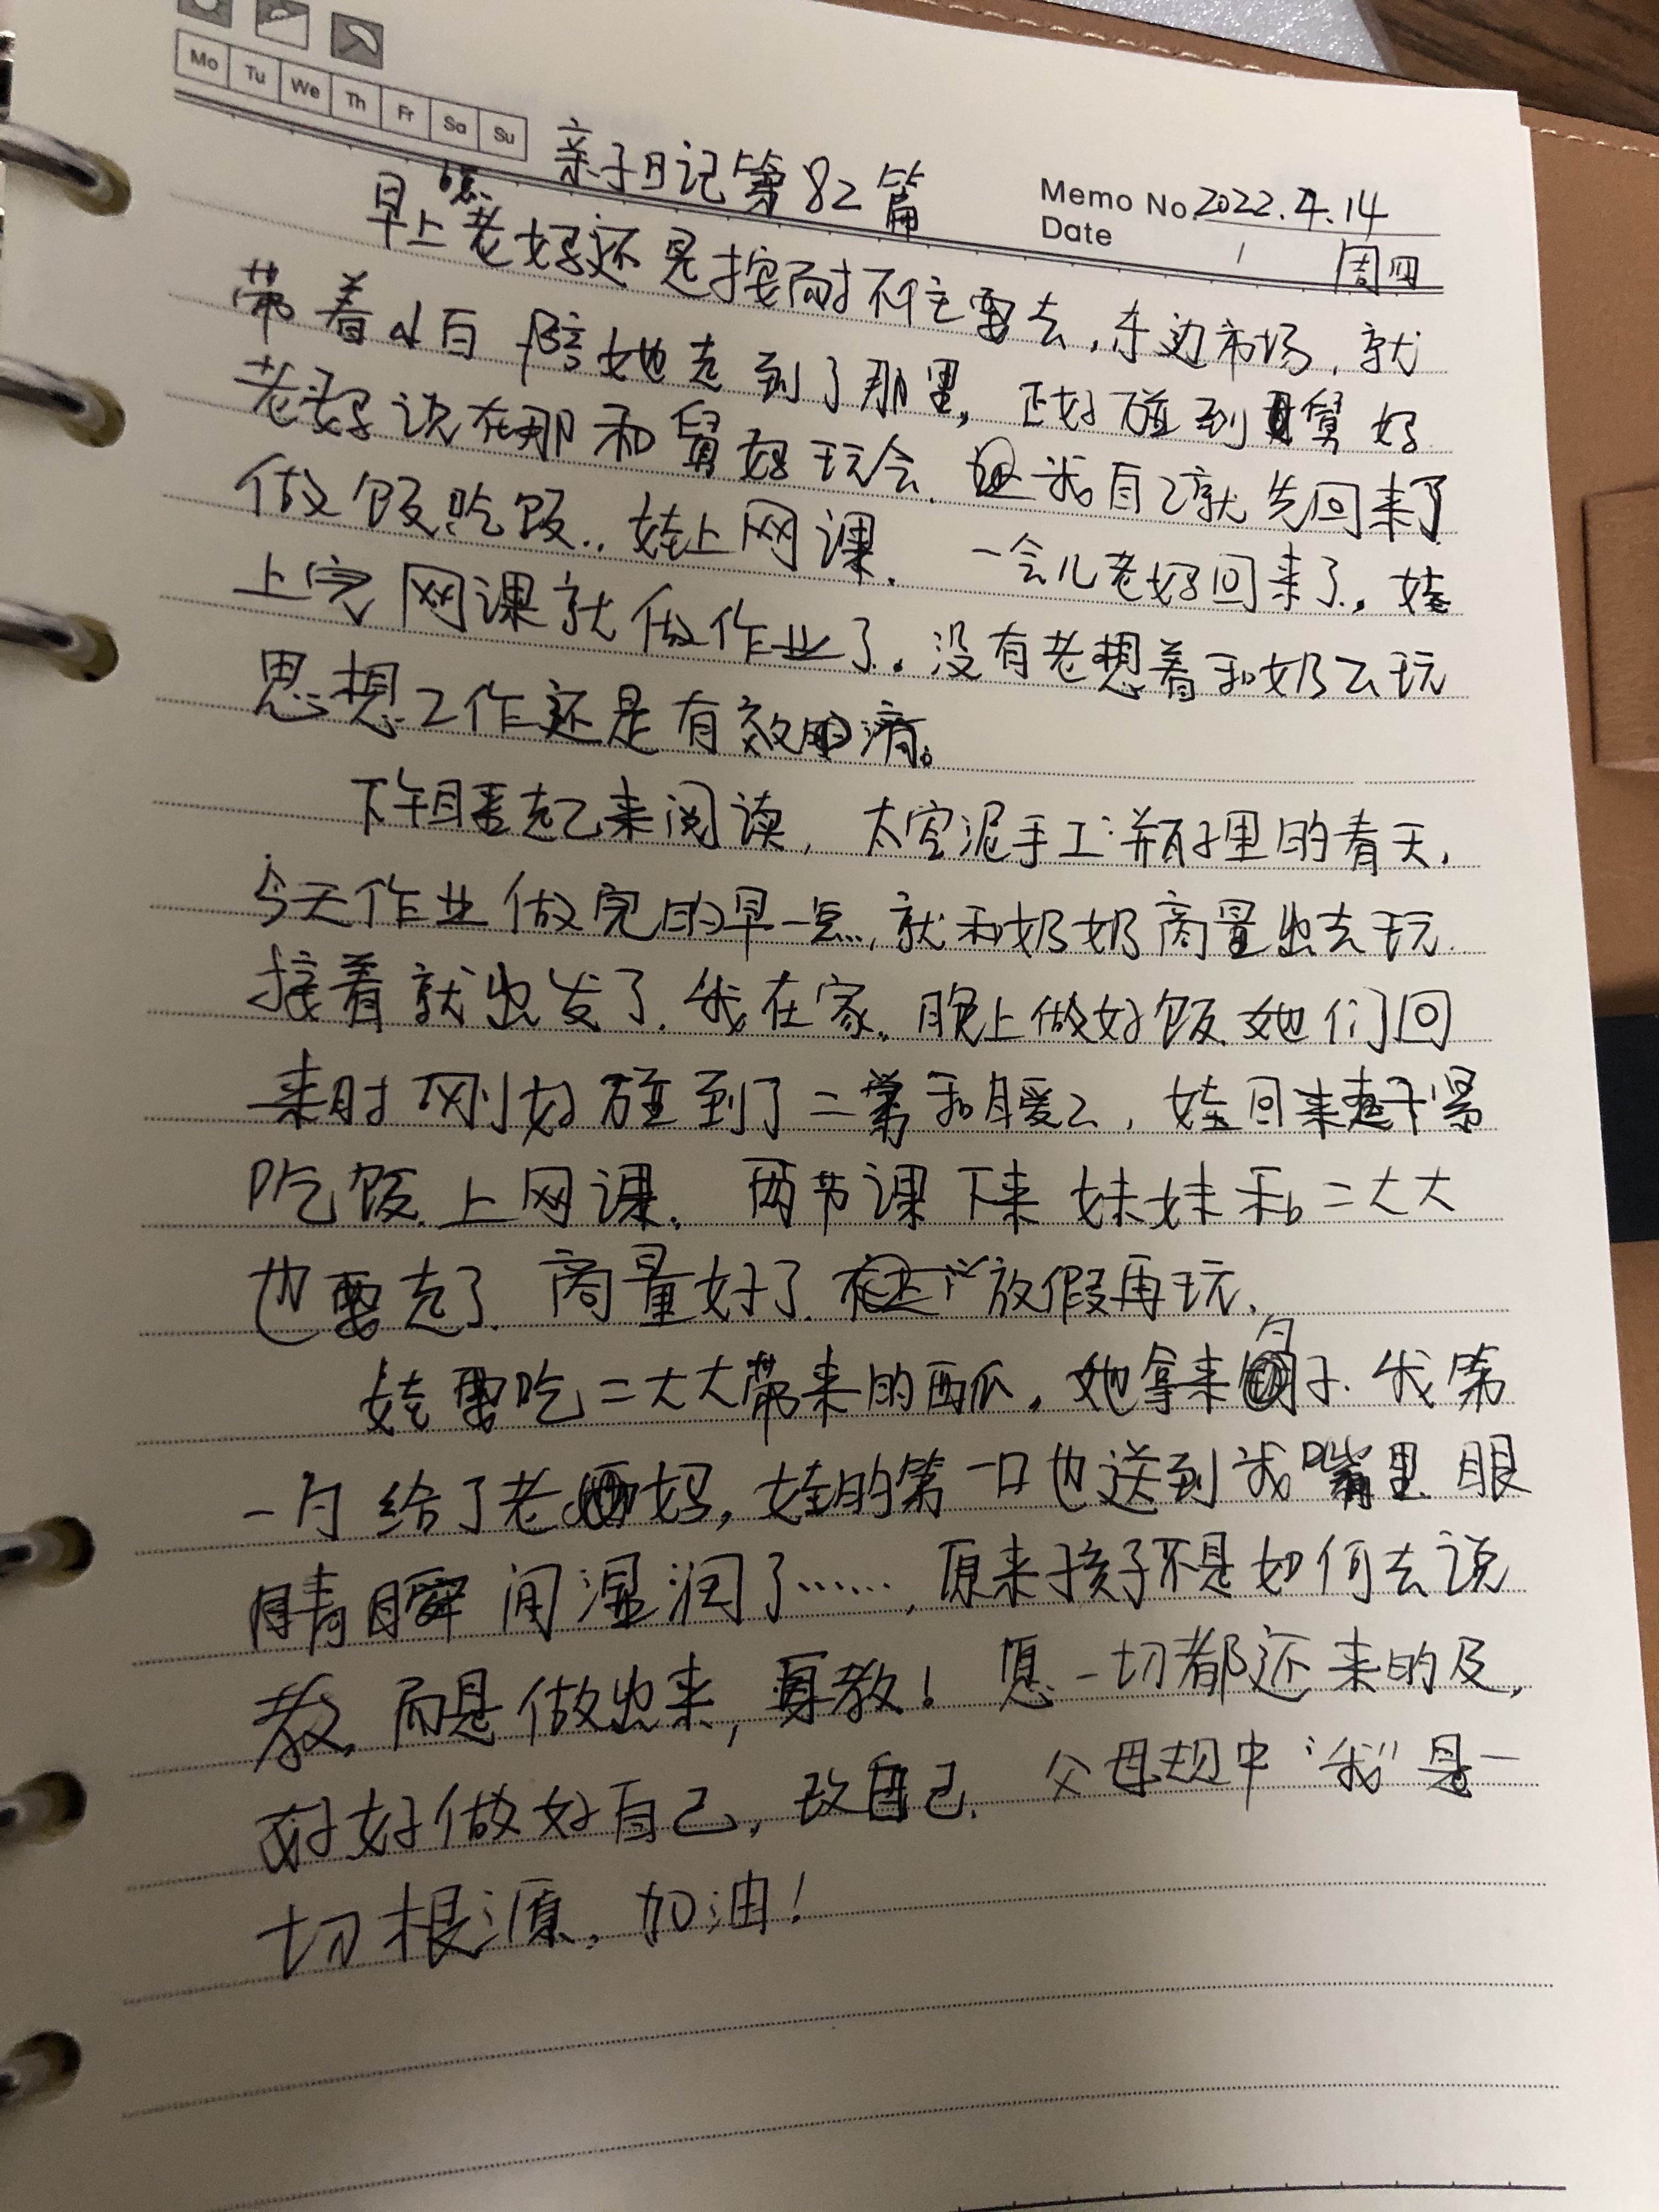 Mo Tu We Th Fr Sa Su
亲子日记第82篇
Memo No. 2022.4.14
Date 周四
早上老妈还是按耐不住要去,东边市场,就
带着小白陪她走到了那里,正好碰到舅妈
老妈说在那和舅妈玩会.我自己就先回来了
做饭吃饭..娃上网课.一会儿老妈回来了,娃
上完网课就做作业了.没有老想着和奶奶玩
思想工作还是有效的滴。
下午睡起来阅读,太空泥手工:瓶子里的春天,
今天作业做完的早一点,就和奶奶商量出去玩.
接着就出发了.我在家.晚上做好饭.她们回
来时刚好碰到了二爹和暖暖,娃回来赶紧
吃饭.上网课.两节课下来妹妹和二大大
也要走了.商量好了.放假再玩.
娃要吃二大大带来的西瓜,她拿来勺子.我第
一勺给了老妈,娃的第一口也送到我嘴里.眼
睛瞬间湿润了……,原来孩子不是如何去说
教,而是做出来,身教!愿一切都还来的及,
好好做好自己,改自己.父母规中“我”是一
切根源,加油!